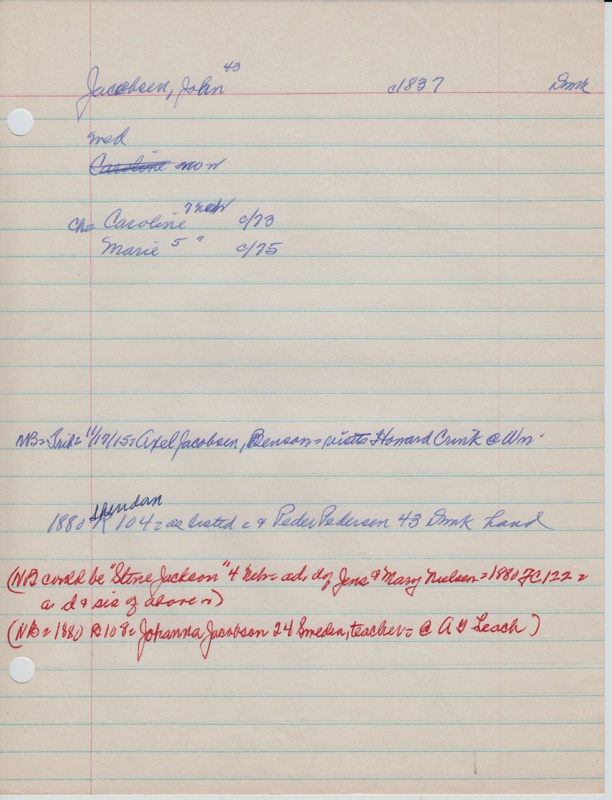 Jacobsen, John 43 c1837 Dmk
med
Caroline
cho Caroline 7 neb c/73
Marie 5 " c/75
NB= Trib= 11/17/15= Axel Jacobsen, Benson= visits Howard Crink @ Wn.
Sheridan
1880 R 104= as listed = & Peder Pedersen 43 Dmk hand
(NB could be "Stine Jackson" 4 Neb= ad. d of Jens & Mary Nielsen= 1880 FC 122=
as d & sis of above
(NB= 1880 R 108= Johanna Jacobson 24 Sweden, teacher= @ A G Leach)